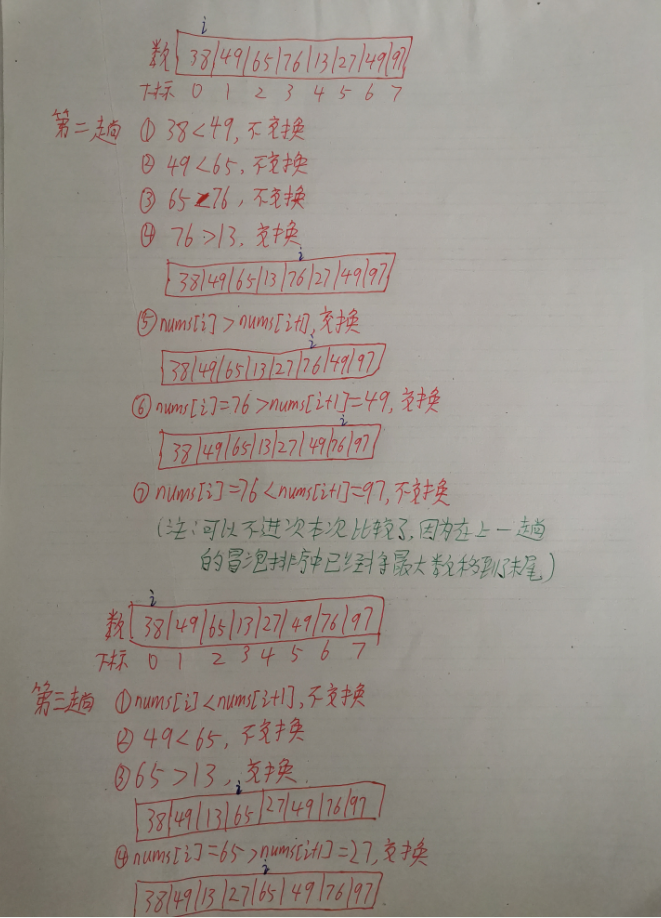 i
数 38|49|65|76|13|27|49|97
下标 0 1 2 3 4 5 6 7
第二趟 ① 38<49, 不交换
② 49<65, 不交换
③ 65<76, 不交换
④ 76>13, 交换
i
38|49|65|13|76|27|49|97
⑤ nums[i]>nums[i+1], 交换
i
38|49|65|13|27|76|49|97
⑥ nums[i]=76>nums[i+1]=49, 交换
i
38|49|65|13|27|49|76|97
⑦ nums[i]=76<nums[i+1]=97, 不交换
(注:可以不进次本次比较了,因为在上一趟
的冒泡排序中已经将最大数移到了末尾)
i
数 38|49|65|13|27|49|76|97
下标 0 1 2 3 4 5 6 7
第三趟 ① nums[i]<nums[i+1], 不交换
② 49<65, 不交换
③ 65>13, 交换.
i
38|49|13|65|27|49|76|97
④ nums[i]=65>nums[i+1]=27, 交换
i
38|49|13|27|65|49|76|97